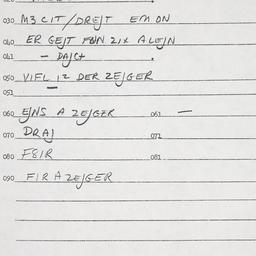 030 M3 CIT/DREJT EM ON
040 ER GEJT FUN ZIX ALEJN
041 - DAJCT
050 VIFL IZ DER ZEJGER
051
060 EJNS A ZEJGER 061 —
070 DRAJ 072
080 F8IR 081
090 FIR A ZEJGER